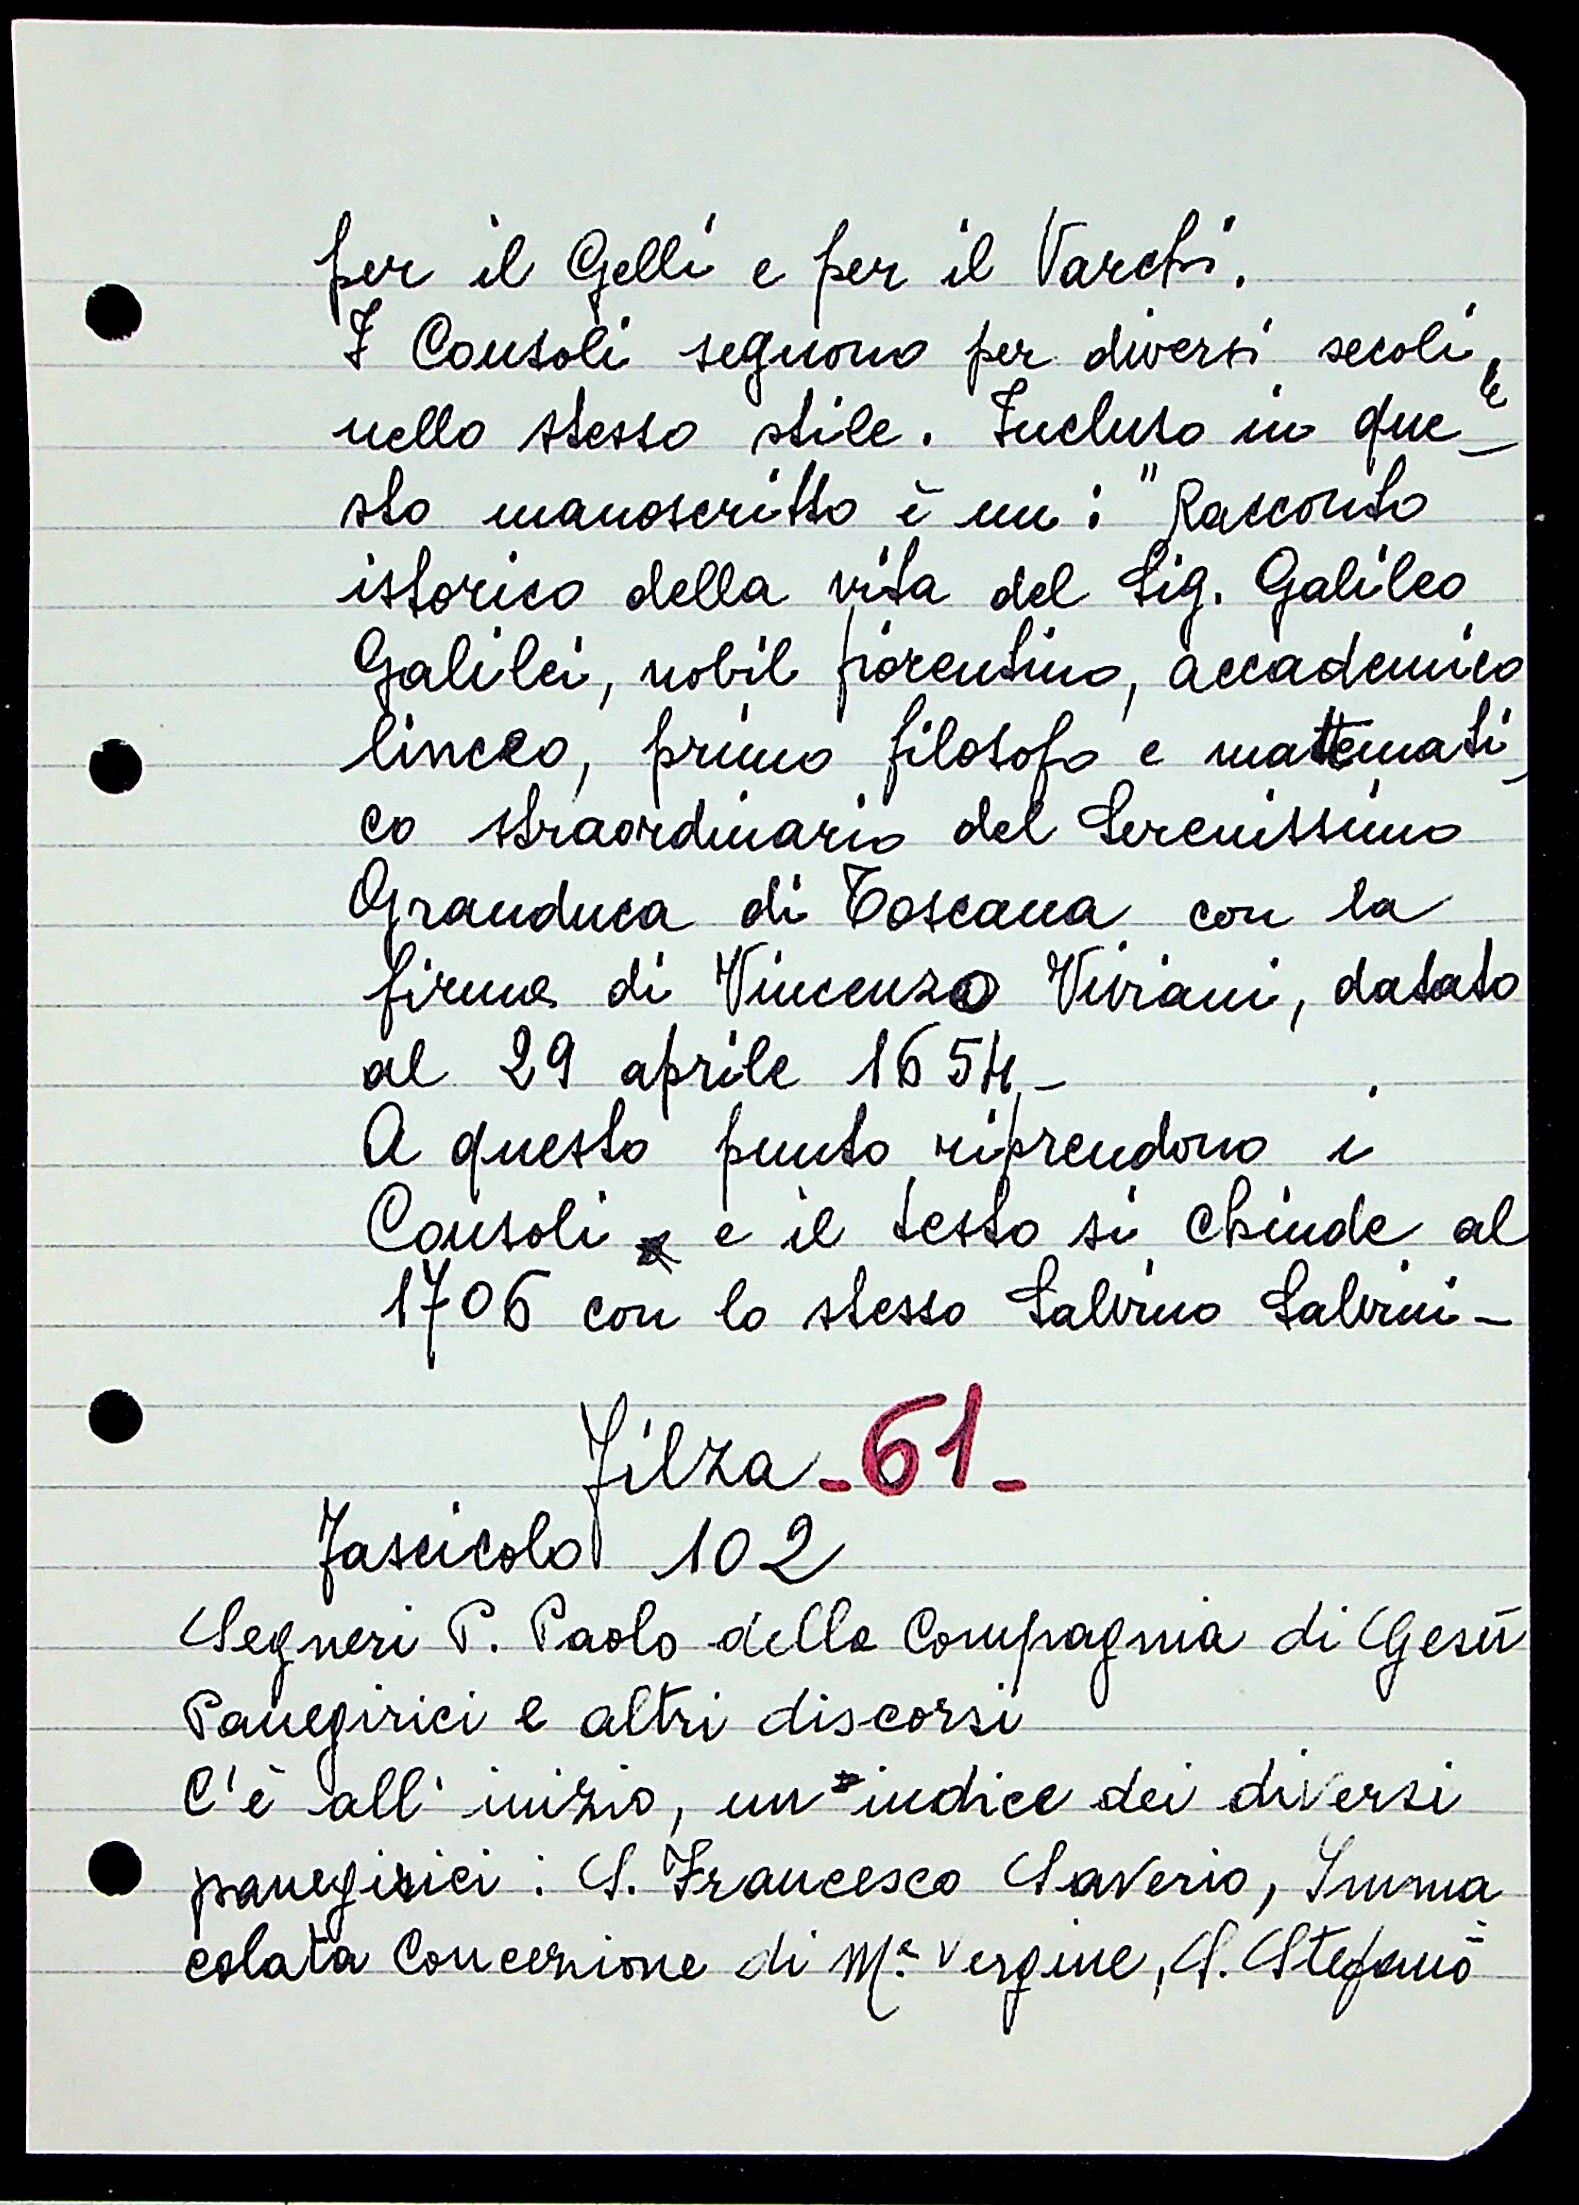 per il Gelli e per il Varchi.
I Consoli seguono per diversi secoli, e
nello stesso stile. Incluso in que-
sto manoscritto è un: "Racconto
istorico della vita del Sig. Galileo
Galilei, nobil fiorentino, accademico
linceo, primo filosofo e mattemati-
co straordinario del Serenissimo
Granduca di Toscana con la
firma di Vincenzo Viviani, datato
al 29 aprile 1654-
A questo punto riprendono i
Consoli e il testo si chiude al
1706 con lo stesso Salvino Salvini-
Filza -61-
Fascicolo 102
Segneri P. Paolo della Compagnia di Gesù
Panegirici e altri discorsi
C'è all'inizio, un indice dei diversi
panegirici: S. Francesco Saverio, Imma
colata Concezione di Mª Vergine, S. Stefano